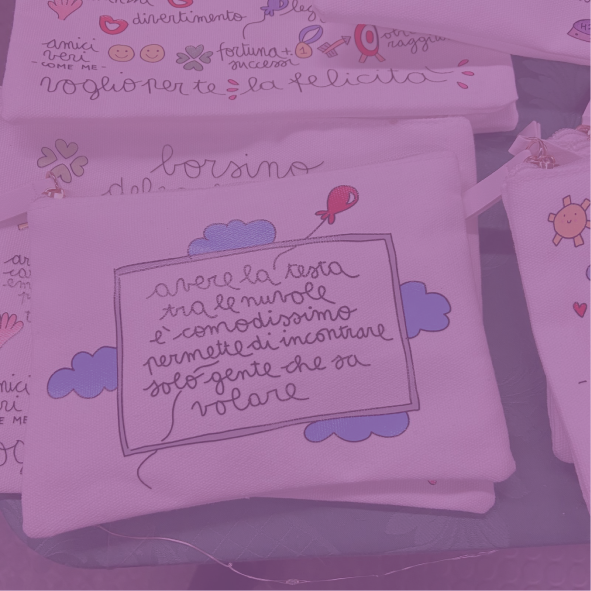 divertimento
amici
veri
- COME ME -
fortuna +
successi
1
voglio per te la felicità
borsino
avere la testa
tra le nuvole
è comodissimo
permette di incontrare
solo gente che sa
volare